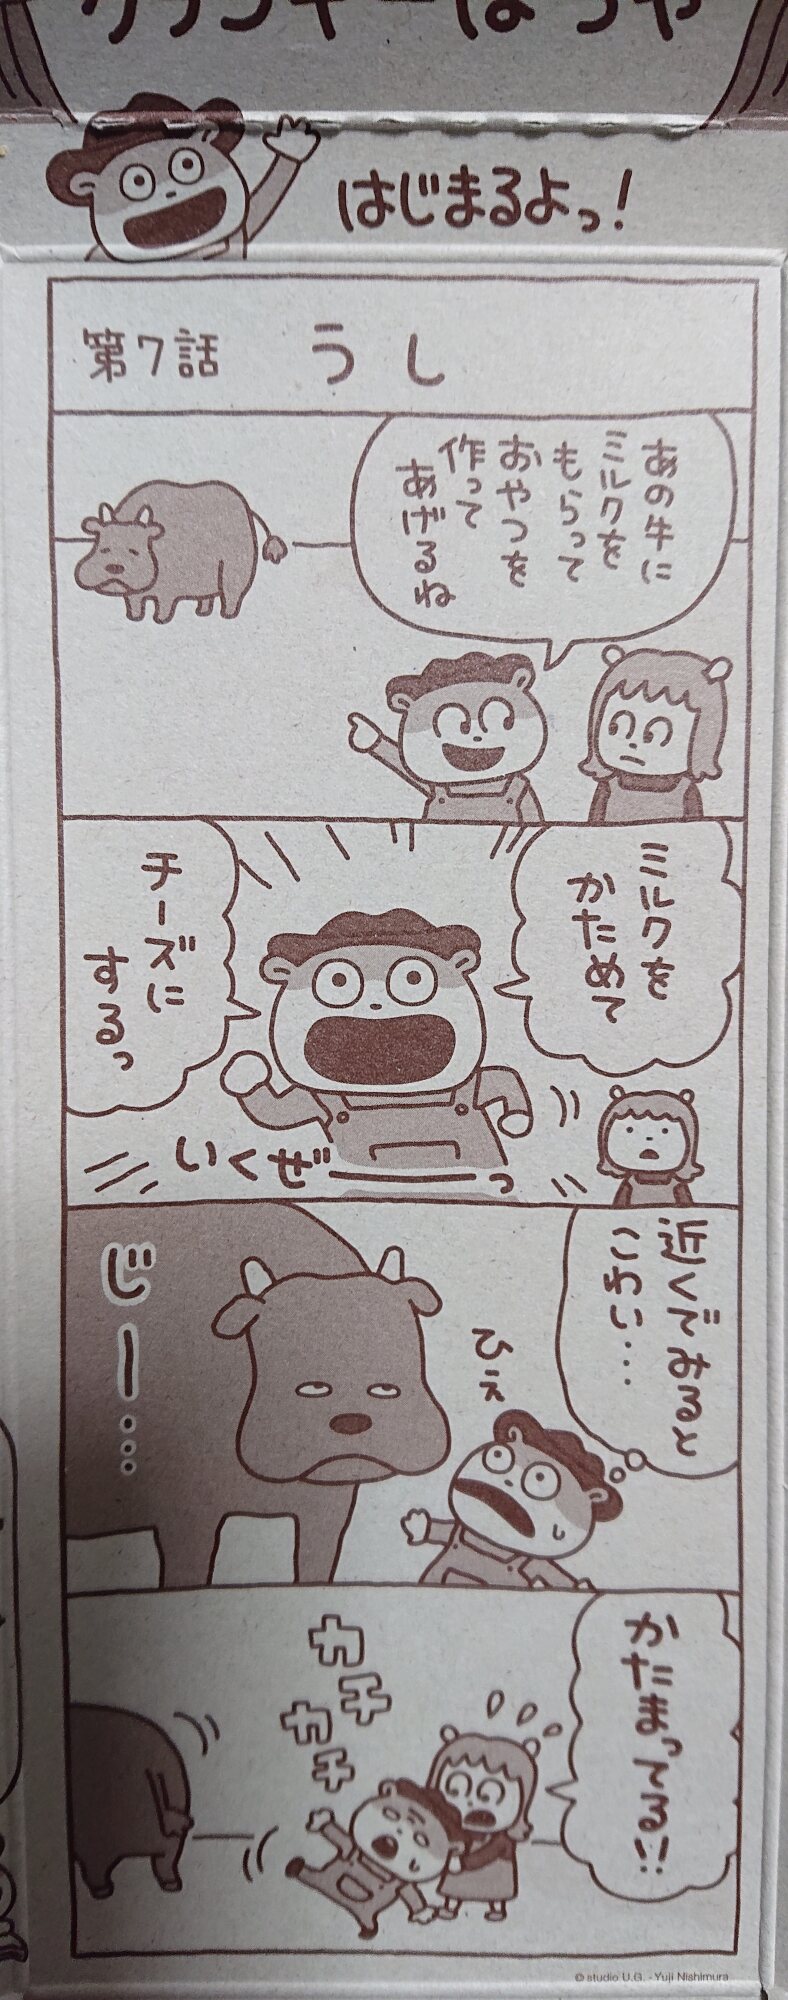 はじまるよっ!
第7話 うし
あの牛に
ミルクを
もらって
おやつを
作って
あげるね
ミルクを
かためて
チーズに
するっ
いくぜーっ
近くでみると
こわい…
ひぇ
じー……
かたまってる!!
カチ
カチ
© studio U.G. - Yuji Nishimura